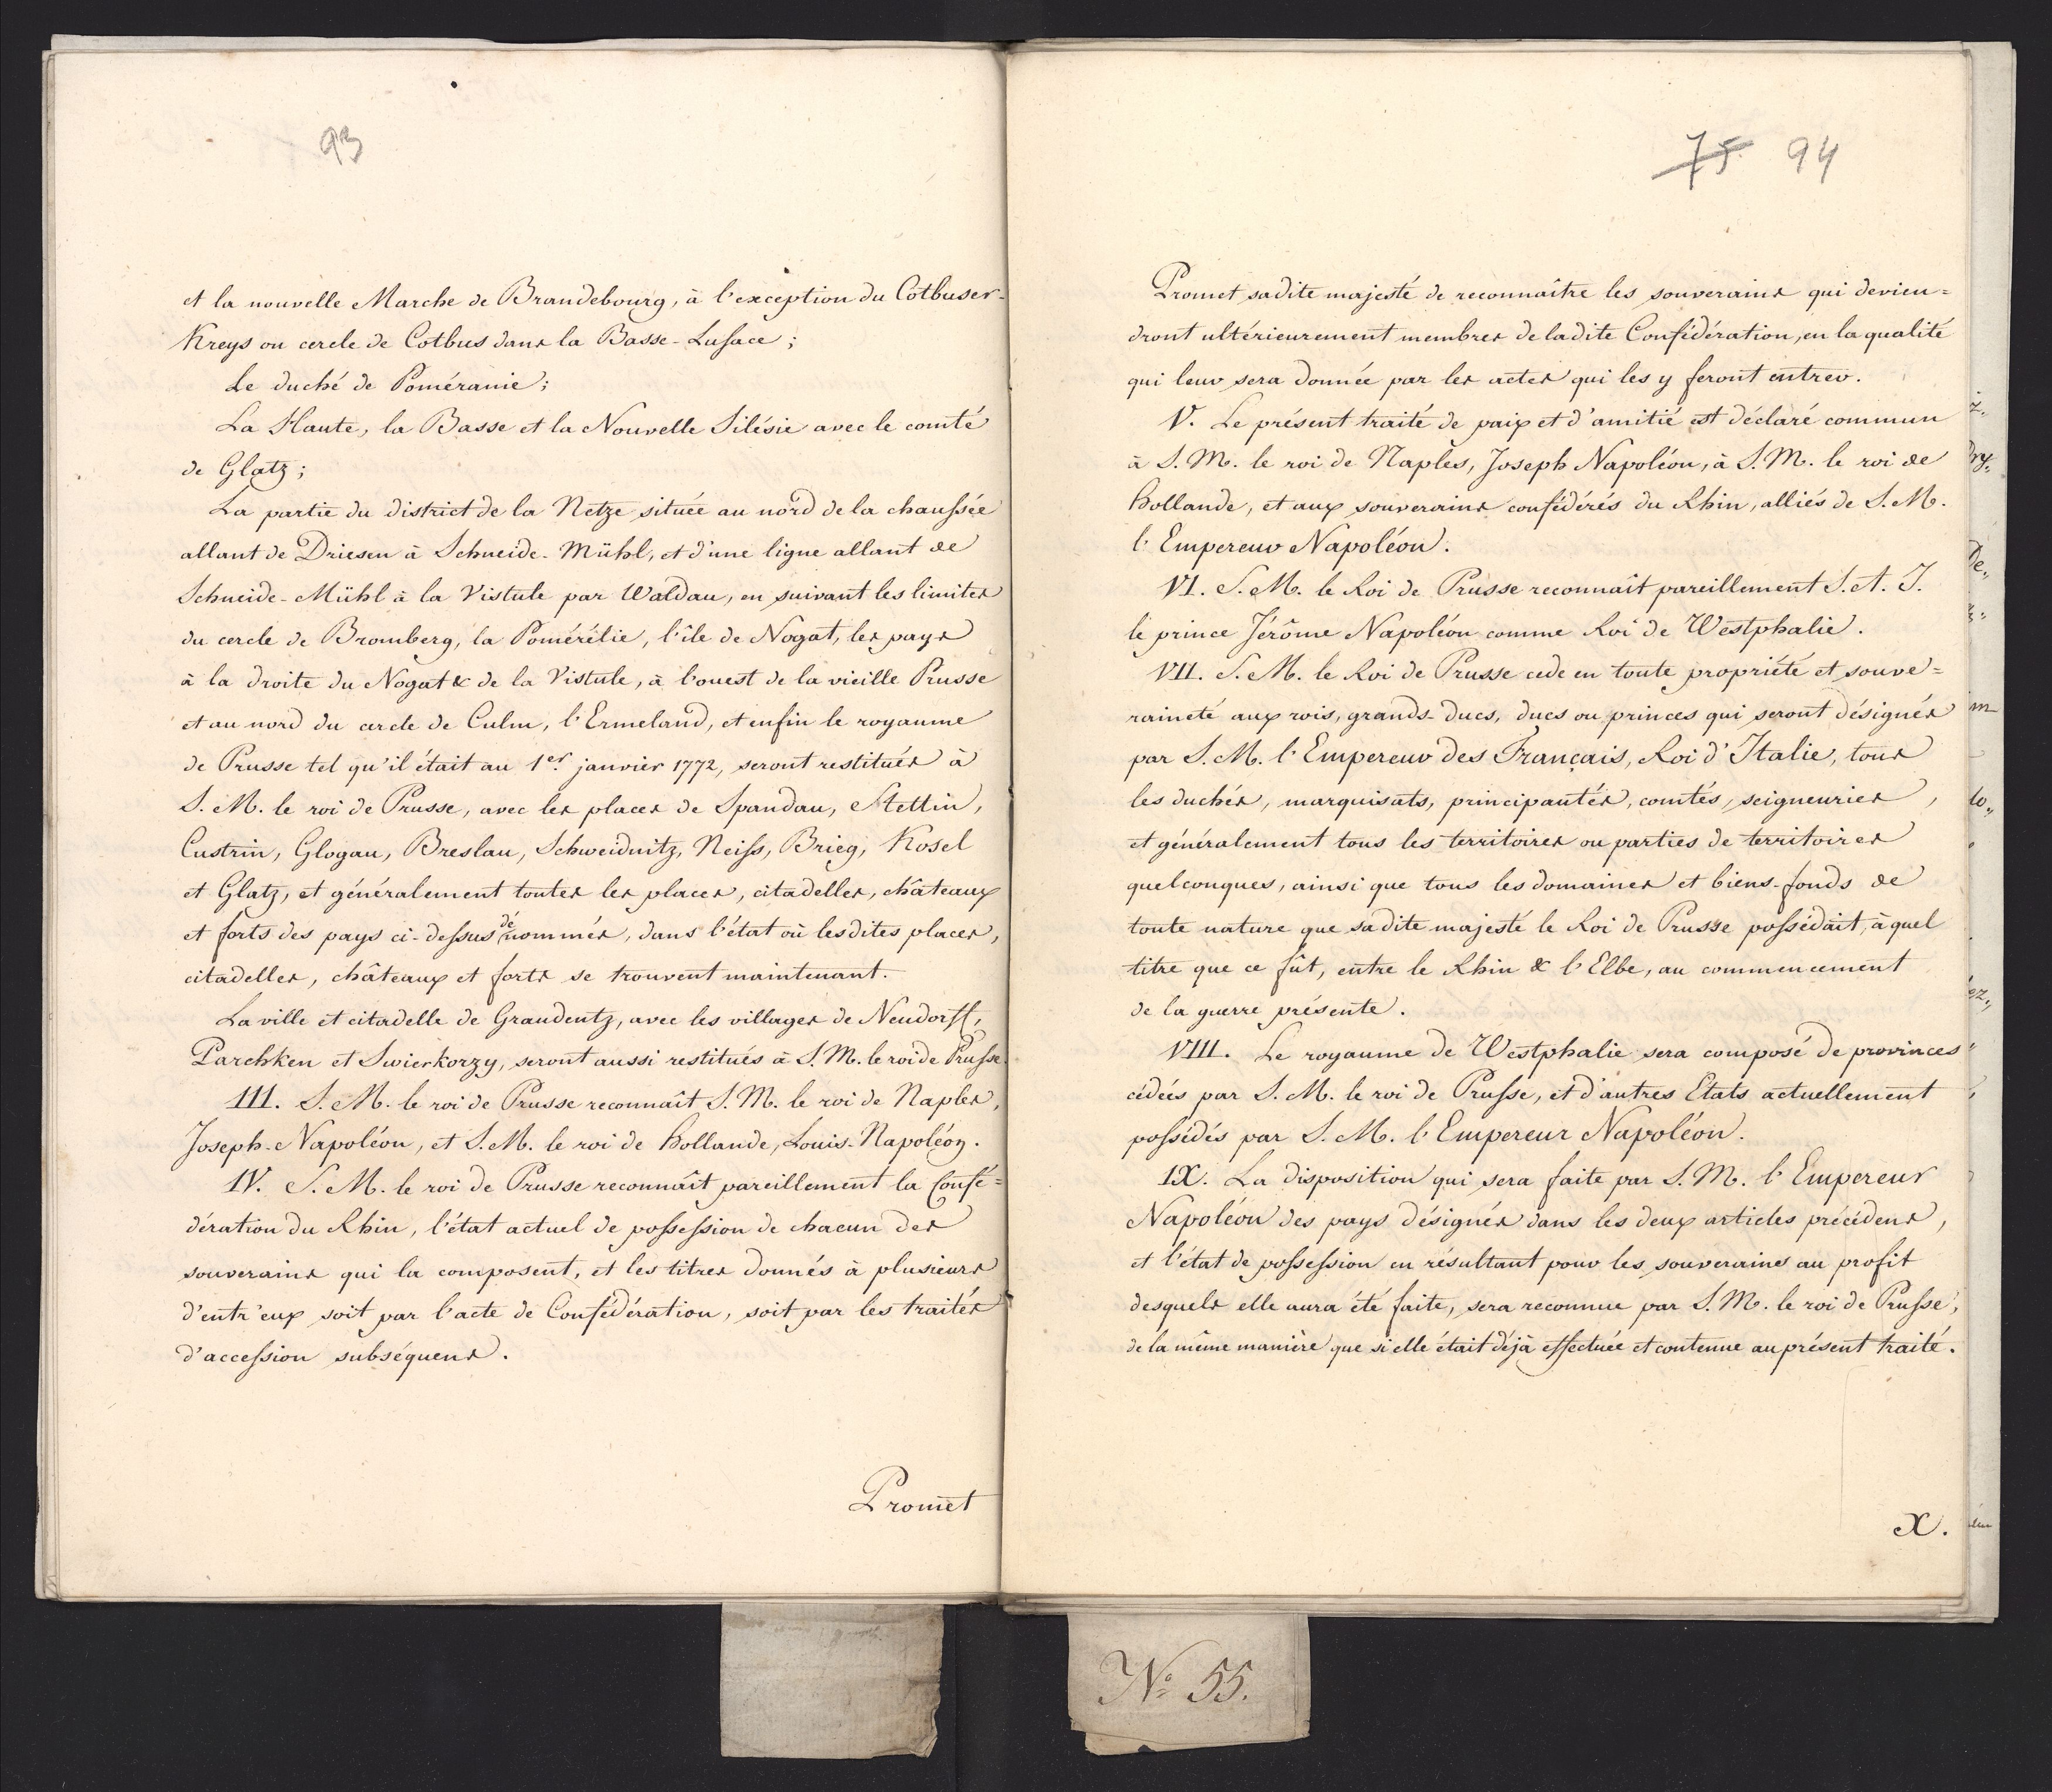 93
et la nouvelle Marche de Brandebourg, à l'exception du Cotbuser-
Kreys ou cercle de Cotbus dans la Basse-Lusace ;
Le duché de Poméranie ;
La Haute, la Basse et la Nouvelle Silésie avec le comté
de Glatz ;
La partie du district de la Netze située au nord de la chaussée
allant de Driesen à Schneide-Mühl, et d'une ligne allant de
Schneide-Mühl à la Vistule par Waldau, en suivant les limites
du cercle de Bromberg, la Pomérélie, l'île de Nogat, les pays
à la droite du Nogat & de la Vistule, à l'ouest de la vieille Prusse
et au nord du cercle de Culm, l'Ermeland, et enfin le royaume
de Prusse tel qu'il était au 1er. janvier 1772, seront restitués à
S. M. le roi de Prusse, avec les places de Spandau, Stettin,
Custrin, Glogau, Breslau, Schweidnitz, Neiss, Brieg, Kosel
et Glatz, et généralement toutes les places, citadelles, châteaux
et forts des pays ci-dessus dénommés, dans l'état où lesdites places,
citadelles, châteaux et forts se trouvent maintenant.
La ville et citadelle de Graudentz, avec les villages de Neudorff,
Parchken et Swierkorzy, seront aussi restitués à S. M. le roi de Prusse.
III. S. M. le roi de Prusse reconnaît S. M. le roi de Naples,
Joseph-Napoléon, et S. M. le roi de hollande, Louis-Napoléon.
IV. S. M. le roi de Prusse reconnaît pareillement la Confé=
dération du Rhin, l'état actuel de possession de chacun des
souverains qui la composent, et les titres donnés à plusieurs
d'entr'eux soit par l'acte de Confédération, soit par les traités
d'accession subséquens.
Promet
75. 94
Promet sadite majesté de reconnaître les souverains qui devien=
dront ultérieurement membres de ladite Confédération, en la qualité
qui leur sera donnée par les actes qui les y feront entrer.
V. Le présent traité de paix et d'amitié est déclaré commun
à S. M. le roi de Naples, Joseph Napoléon, à S. M. le roi de
hollande, et aux souverains confédérés du Rhin, alliés de S. M.
l'Empereur Napoléon.
VI. S. M. le Roi de Prusse reconnaît pareillement S. A. I.
le prince Jérôme Napoléon comme Roi de Westphalie.
VII. S. M. le Roi de Prusse cede en toute propriété et souve=
raineté aux rois, grands-ducs, ducs ou princes qui seront désignés
par S. M. l'Empereur des Français, Roi d'Italie, tous
les duchés, marquisats, principautés, comtés, seigneuries,
et généralement tous les territoires ou parties de territoires
quelconques, ainsi que tous les domaines et biens-fonds de
toute nature que sadite majesté le Roi de Prusse possédait, à quel
titre que ce fût, entre le Rhin & l'Elbe, au commencement
de la guerre présente.
VIII. Le royaume de Westphalie sera composé de provinces
cédées par S. M. le roi de Prusse, et d'autres Etats actuellement
possédés par S. M. l'Empereur Napoléon.
IX. La disposition qui sera faite par S. M. l'Empereur
Napoléon des pays désignés dans les deux articles précédens,
et l'état de possession en résultant pour les souverains au profit
desquels elle aura été faite, sera reconnue par S. M. le roi de Prusse,
de la même manière que si elle était déjà effectuée et contenue au présent traité.
X.
No 55.